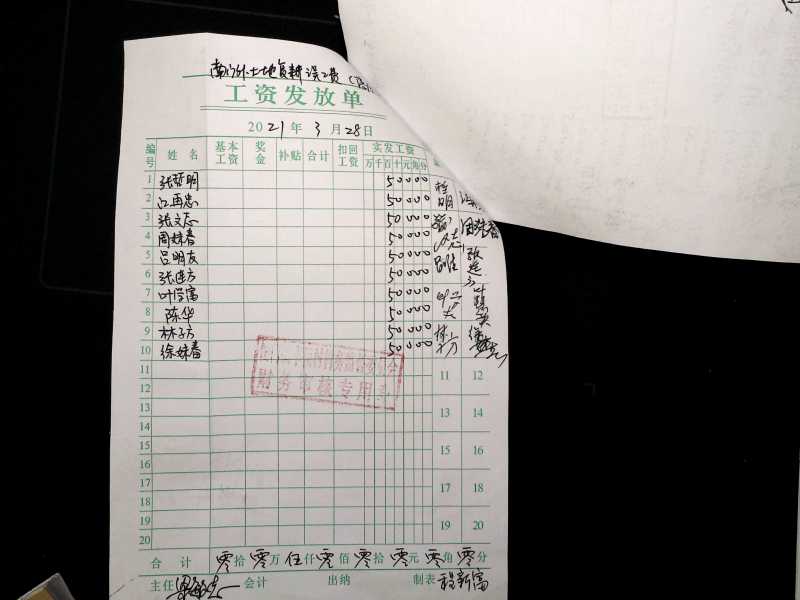 南门外土地复耕误工费
工资发放单
2021年3月28日
编号 姓名 基本工资 奖金 补贴 合计 扣回工资 实发工资
万千百十元角分
1 张哲明 50000
2 江再忠 50000
3 张文志 50000
4 周妹春 50000
5 吕明友 50000
6 张连方 50000
7 叶学富 50000
8 陈华 50000
9 林子方 50000
10 徐妹春 50000
11 11 12
12
13 13 14
14
15 15 16
16
17 17 18
18
19 19 20
20
财务审核专用章
合计 零拾零万伍仟零佰零拾零元零角零分
主任 会计 出纳 制表 程新富